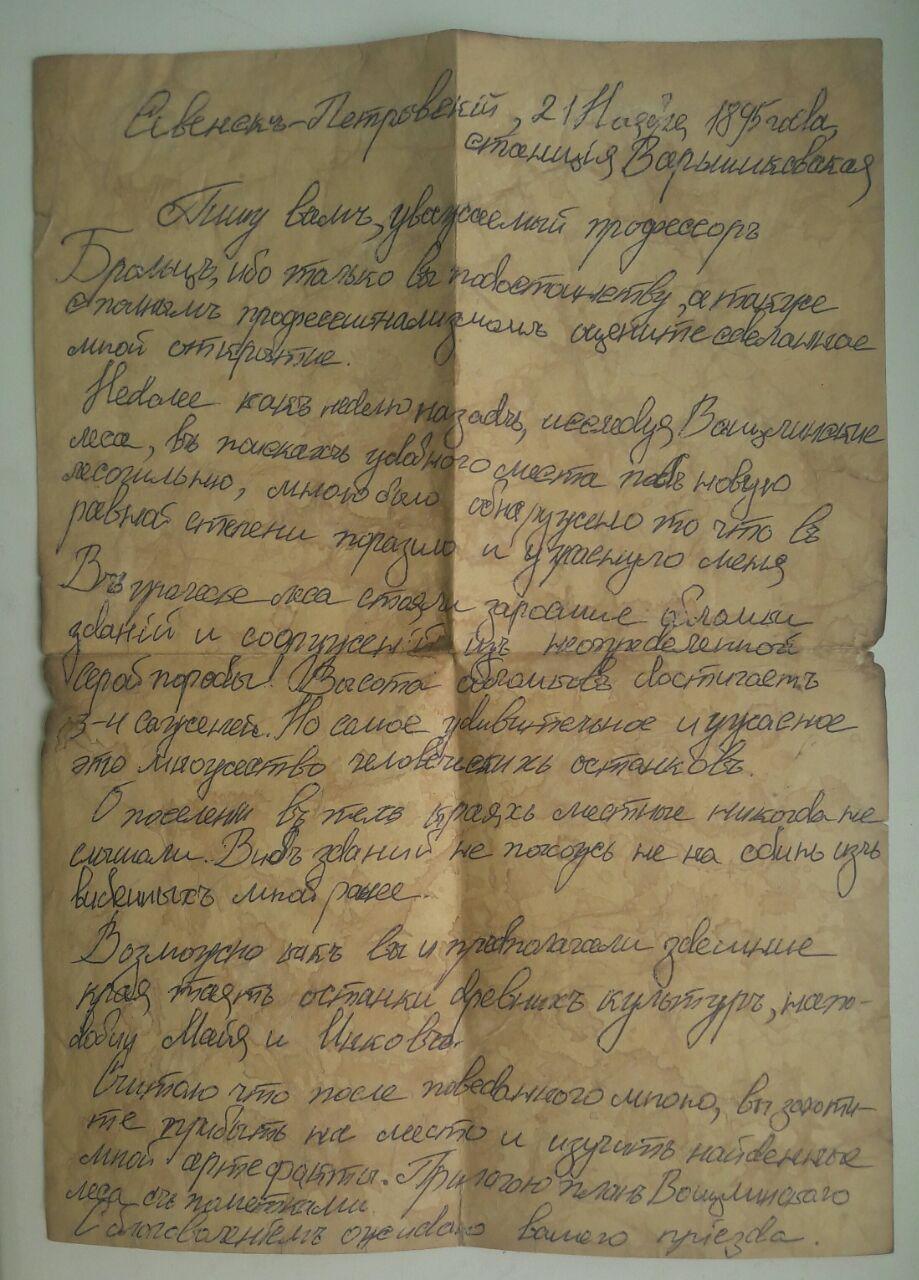 Сквенскъ-Петровскій, 21 Ноября 1895 года,
станиція Варышиковская
Пишу вамъ, уважаемый профессоръ
ибо только вы по достоинству, а также
с полнымъ профессионализмомъ оцените сделанное
мной открытие.
Неболее какъ неделю назадъ, исследуя Вощулинские
леса, въ поискахъ удобного места подъ новую
лесопильню, мною было обнаружено то что въ
равной степени поразило и ужаснуло меня
Въ участке леса стояли заросшие обломки
зданій и сооруженій изъ неопределенной
серой породы! Высота обломковъ достигаетъ
3-4 саженей. Но самое удивительное и ужасное
это множество человеческихъ останковъ.
О поселени въ техъ краяхъ местные никогда не
слышали. Видъ зданий не похожъ не на одинъ изъ
виденныхъ мной ранее.
Возможно какъ вы и предполагали здешние
края таятъ останки древнихъ культуръ, напо-
добии Майя и Инковъ.
Считаю что после поведанного мною, вы захоти-
те прибыть на место и изучить найденные
мной артефакты. Прилогаю планъ Вощулинского
леса съ пометками.
С благоволениемъ ожидаю вашего пріезда.